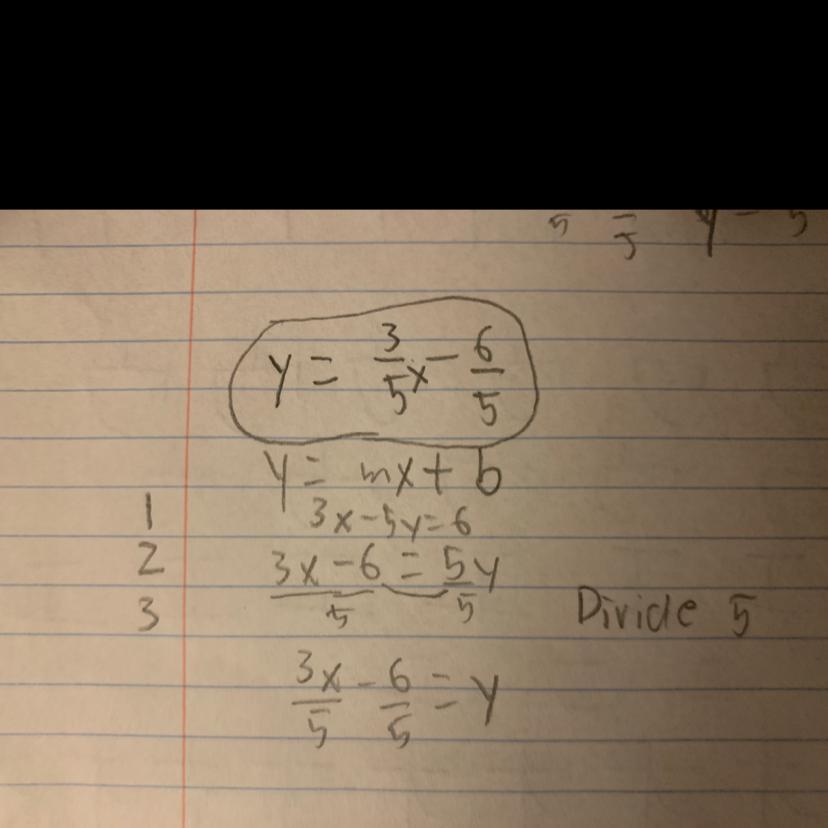 5 5 y = 5
y = 3/5 x - 6/5
y = mx + b
1 3x - 5y = 6
2 3x - 6 = 5y
3 5 5 Divide 5
3x/5 - 6/5 = y